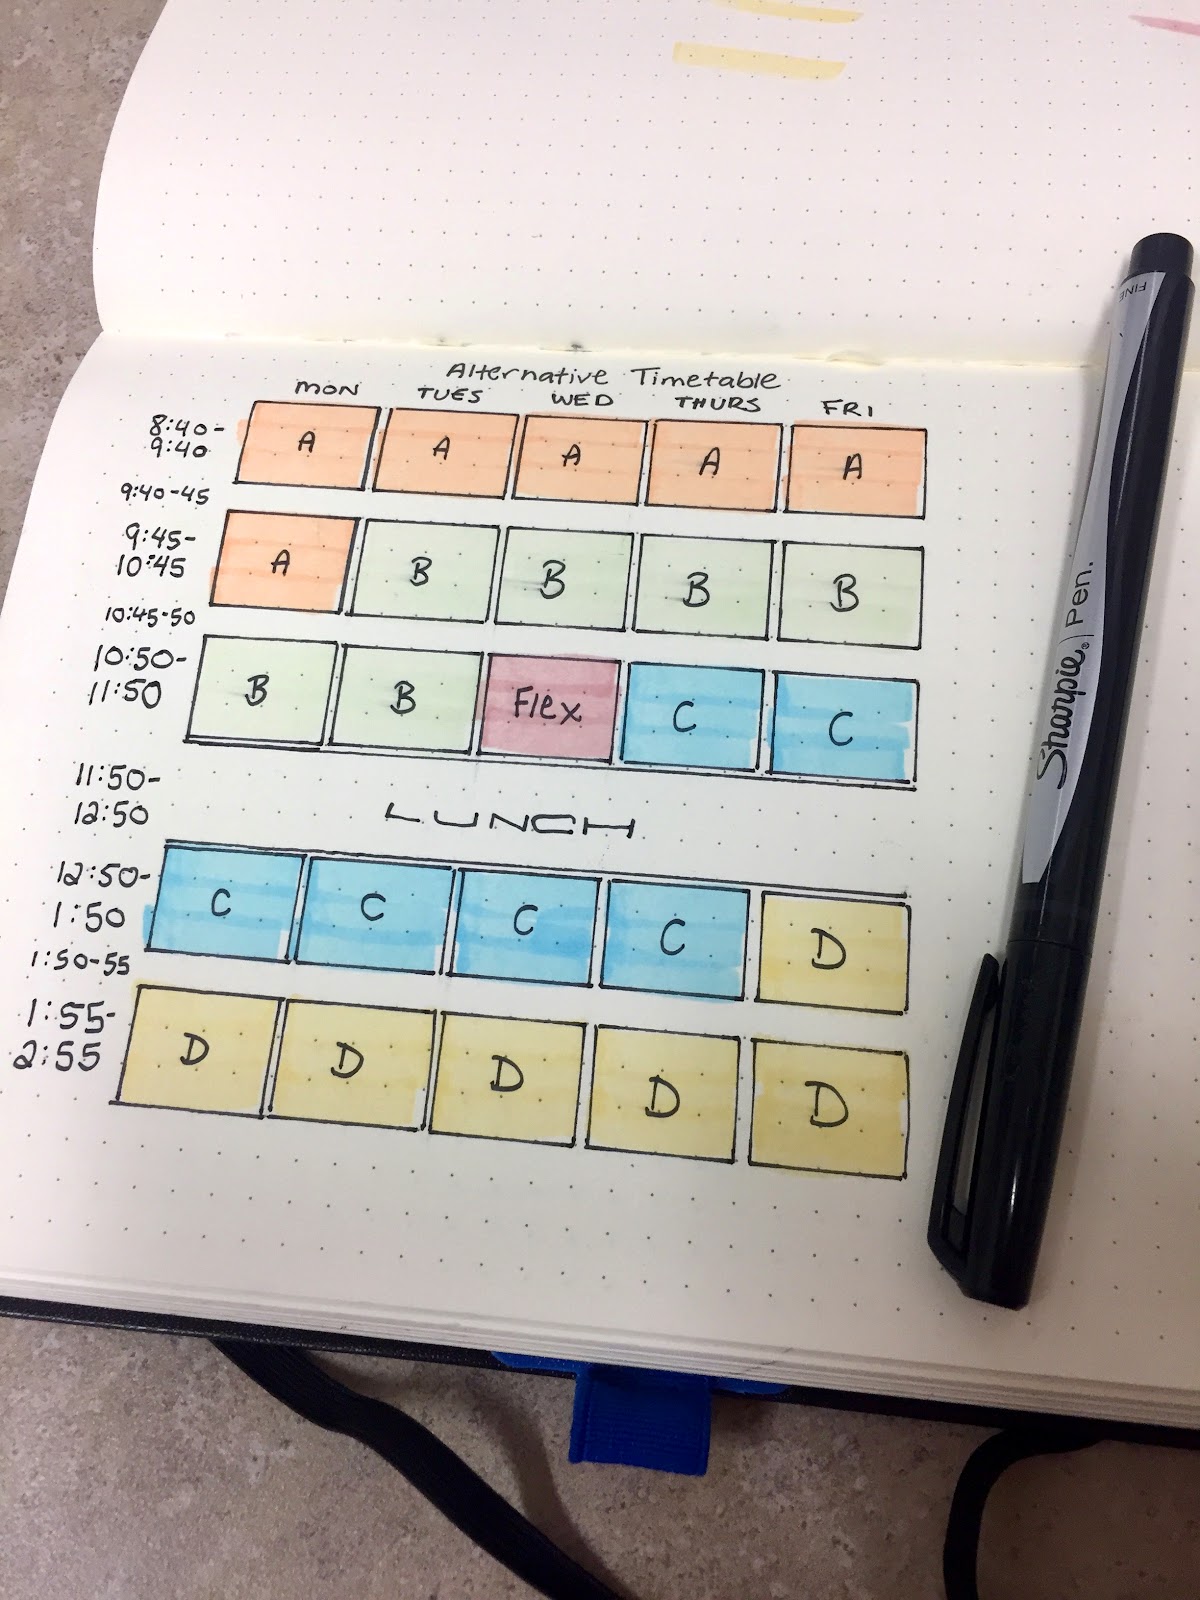 Alternative Timetable
MON TUES WED THURS FRI
8:40-
9:40
A A A A A
9:40-45
9:45-
10:45
A B B B B
10:45-50
10:50-
11:50
B B Flex C C
11:50-
12:50
LUNCH
12:50-
1:50
C C C C D
1:50-55
1:55-
2:55
D D D D D
FINE
Sharpie® Pen.